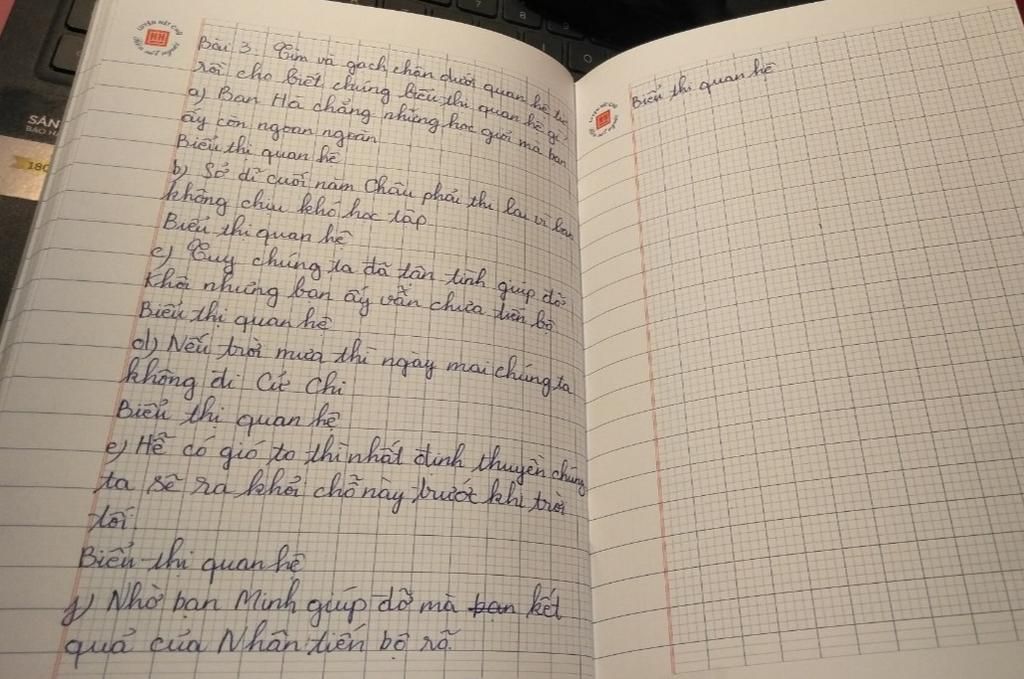 Bài 3. Tìm và gạch chân dưới quan hệ từ
rồi cho biết, chúng biểu thị quan hệ gì,
a) Bạn Hà chẳng những học giỏi mà bạn
ấy còn ngoan ngoãn
Biểu thị quan hệ
b) Sở dĩ cuối năm Châu phải thi lại vì bạn
không chịu khó học tập.
Biểu thị quan hệ
c) Tuy chúng ta đã tận tình giúp đỡ
Khôi nhưng bạn ấy vẫn chưa tiến bộ
Biểu thị quan hệ
d) Nếu trời mưa thì ngày mai chúng ta
không đi Củ Chi
Biểu thị quan hệ
e) Hễ có gió to thì nhất định thuyền chúng
ta sẽ ra khỏi chỗ này trước khi trời
tối
Biểu thị quan hệ
g) Nhờ bạn Minh giúp đỡ mà kết
quả của Nhân tiến bộ rõ.
Biểu thị quan hệ
LUYỆN NÉT CHỮ
RÈN NẾT NGƯỜI
HH
SÁN
BẢO H
180